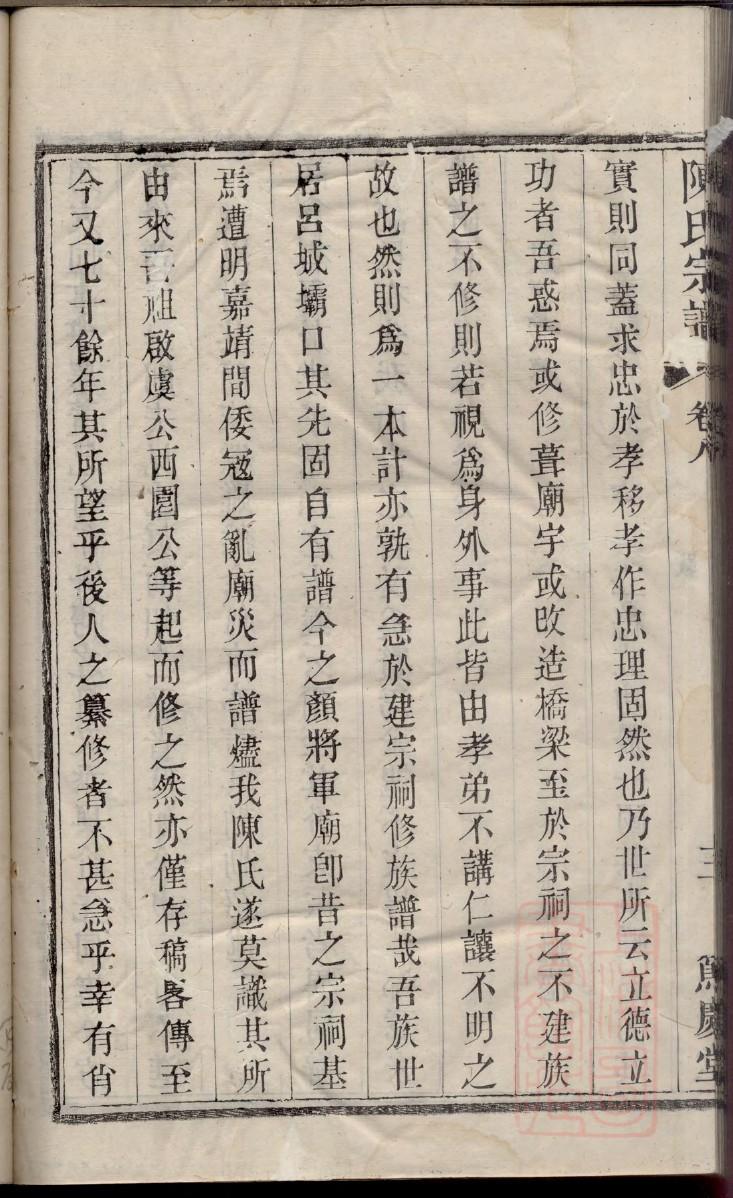 陳氏宗譜 卷序 三 篤慶堂
實則同蓋求忠於孝移孝作忠理固然也乃世所云立德立
功者吾惑焉或修葺廟宇或改造橋梁至於宗祠之不建族
譜之不修則若視爲身外事此皆由孝弟不講仁讓不明之
故也然則爲一本計亦孰有急於建宗祠修族譜哉吾族世
居呂城壩口其先固自有譜今之顏將軍廟卽昔之宗祠基
焉遭明嘉靖間倭冦之亂廟災而譜燼我陳氏遂莫識其所
由來吾祖啟虞公西園公等起而修之然亦僅存稿畧傳至
今又七十餘年其所望乎後人之纂修者不甚急乎幸有肖